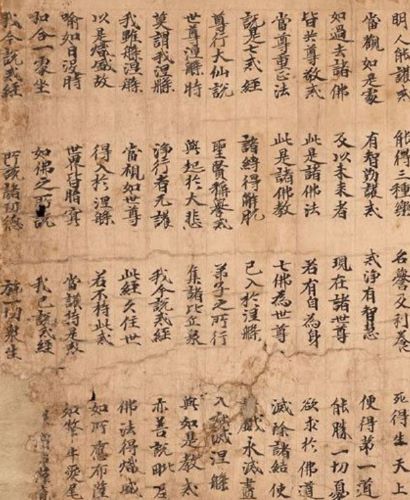 明人能護戒 能得三種樂 名譽及利養 死得生天上
當觀如是處 有智勤護戒 戒淨有智慧 便得第一道
如過去諸佛 及以未來者 現在諸世尊 能勝一切憂
皆共尊敬戒 此是諸佛法 若有自為身 欲求於佛道
當尊重正法 此是諸佛教 七佛為世尊 滅除諸結使
說是七戒經 諸縛得解脫 已入於涅槃 戲永滅盡
尊行大仙說 聖賢稱譽戒 弟子之所行 入滅涅槃
世尊涅槃時 興起於大悲 集諸比丘衆 與如是教戒
莫謂我涅槃 淨行者无護 我今說戒經 亦善說毗尼
我雖般涅槃 當視如世尊 此經久住世 佛法得熾盛
以是熾盛故 得入於涅槃 若不持此戒 如所應布薩
喻如日沒時 世界皆暗冥 當護持是戒 如犛牛愛尾
和合一處坐 如佛之所說 我已說戒經 衆僧布薩
我今說戒經 所說諸功德 施一切衆生